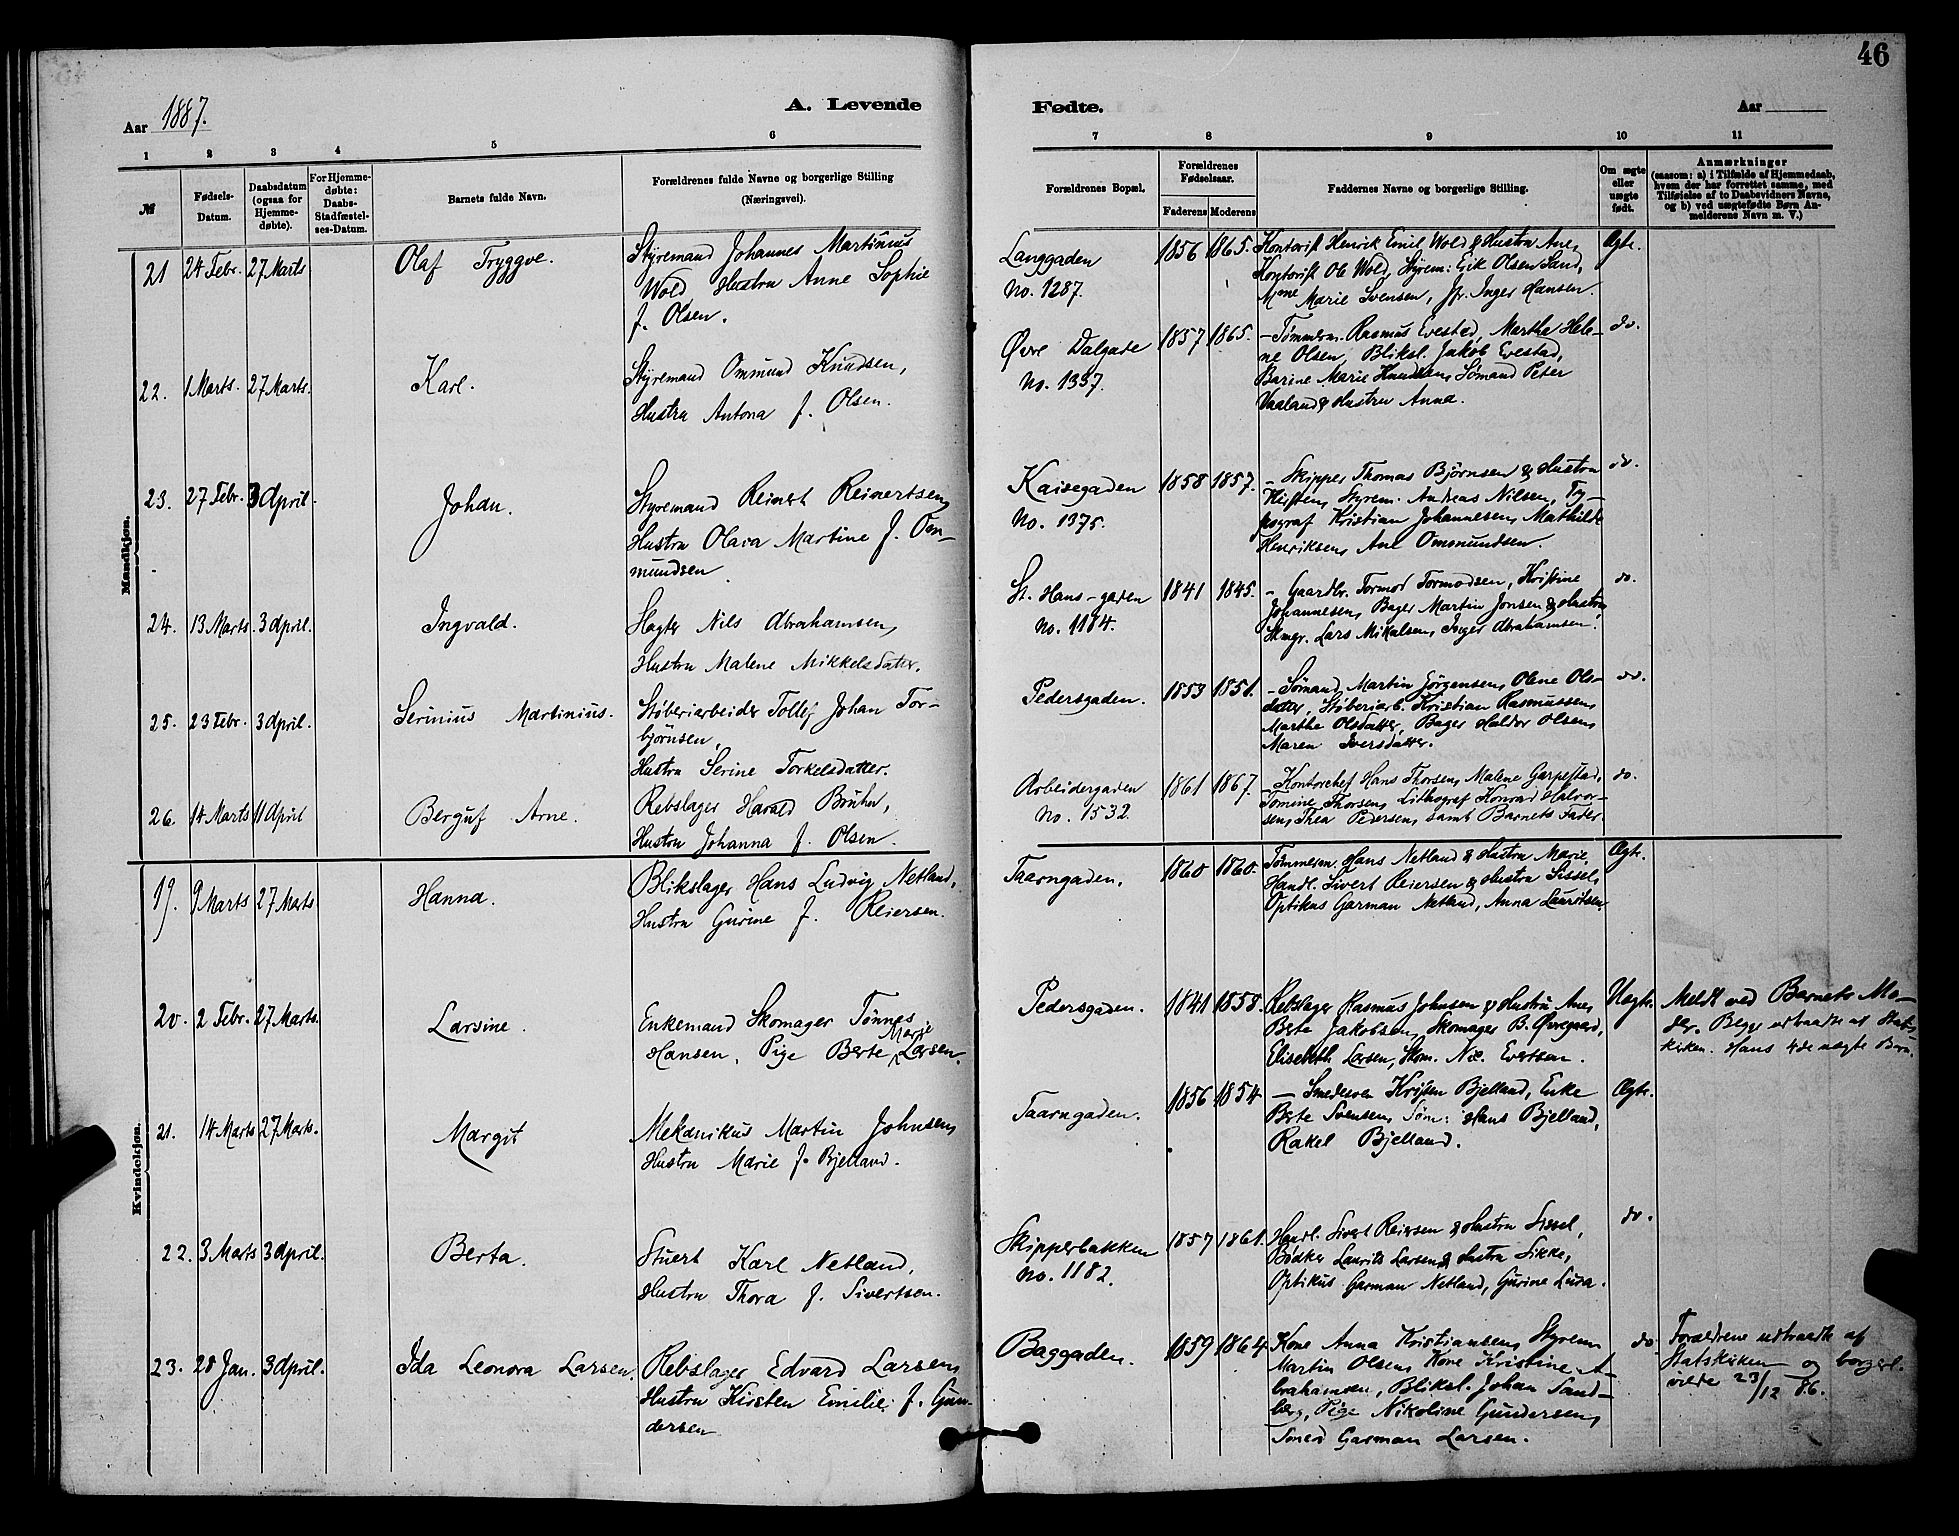 46
Aar 1887.
A. Levende
Fødte.
Aar
1 2 3 4 5 6 7 8 9 10 11
№
Fødsels-Datum.
Daabsdatum (ogsaa for Hjemme-døbte).
For Hjemme-døbte: Daabs-Stadfæstel-ses-Datum.
Barnets fulde Navn.
Forældrenes fulde Navne og borgerlige Stilling (Næringsvei).
Forældrenes Bopæl.
Forældrenes Fødselsaar.
Faderens Moderens
Faddernes Navne og borgerlige Stilling.
Om ægte eller uægte født.
Anmærkninger
(saasom: a) i Tilfælde af Hjemmedaab, hvem der har forrettet samme, med Tilføielse af to Daabsvidners Navne, og b) ved uægtefødte Børn Anmelderens Navn m. V.)
Mandkjøn.
21 24 Febr. 27 Marts Olaf Tryggve.
Styremand Johannes Martinius
Wold Hustru Anne Sophie
f. Olsen.
Langgaden
No. 1287.
1856 1865.
Kontorist Henrik Emil Wold & Hustru Ane,
Kontorist Ob Wold, Styrem: Erik Olsen Sand,
Mme Marie Svensen, Jfr. Inger Hansen.
Ægte.
22. 1 Marts. 27 Marts. Karl.
Styremand Ommund Knudsen,
Hustru Antona f. Olsen.
Øvre Dalgade
No. 1337.
1857 1865.
- Tømmerm. Rasmus Evestad, Marthe Hele-
ne Olsen, Bliksl. Jakob Evestad,
Barine Marie Knudsen, Sømand Peter
Vaaland & Hustru Anna.
do.
23. 27 Febr. 3 April. Johan.
Styremand Reinert Reinertsen,
Hustru Olava Martine f. Om-
mundsen.
Kaisegaden
No. 1375.
1858 1857.
- Skipper Thomas Bjørnsen & Hustru
Kristen, Styrem. Andreas Nilsen, Ty-
pograf Kristian Johannesen, Mathilde
Henriksen, Ane Ommundsen.
do.
24. 13 Marts. 3 April. Ingvald.
Slagter Nils Abrahamsen,
Hustru Malene Mikkelsdatter.
St. Hans-gaden
No. 1184.
1841 1845.
- Gaardbr. Tormod Tormodsen, Kristine
Johannesen, Bager Martin Jonsen & Hustru,
Skmgr. Lars Mikalsen, Inger Abrahamsen.
do.
25. 23 Febr. 3 April. Serinius Martinius.
Støberiarbeider Tollef Johan Tor-
bjørnsen,
Hustru Serine Torkelsdatter.
Pedersgaden.
1853 1851.
- Sømand Martin Jørgensen, Olene Ols-
datter, Støberiarb. Kristian Rasmussen,
Marthe Olsdatter, Bager Haldor Olsen,
Maren Iversdatter.
do.
26. 14 Marts 11 April Berguf Arne.
Rebslager Harald Bruhn,
Hustru Johanna f. Olsen.
Arbeidergaden
No. 1532.
1861 1867.
- Kontorchef Hans Thorsen, Malene Garpestad,
Tomine Thorsen, Lithograf Konrad Halvor-
sen, Thea Pedersen, samt Barnets Fader.
do.
Kvindekjøn.
19. 9 Marts 27 Marts Hanna.
Blikslager Hans Ludvig Netland,
Hustru Gurine f. Reiersen.
Taarngaden.
1860 1860.
Tømmerm. Hans Netland & Hustru Marie,
Handl. Sivert Reiersen & Hustru Sissel,
Optikus Garman Netland, Anna Lauritsen.
Ægte.
20. 2 Febr. 27 Marts. Larsine.
Enkemand Skomager Tønnes
Hansen, Pige Berte Marie Larsen.
Pedersgaden.
1841 1858.
Rebslager Rasmus Johnsen & Hustru Ane,
Berte Jakobsen, Skomager B. Øvregaard,
Elisabeth Larsen, Skom. Nic. Evertsen.
Uægte.
Meldt ved Barnets Mo-
der. Begge udtraadte af Stats-
kirken. Hans 4de uægte Barn.
21. 14 Marts 27 Marts. Margit
Mekanikus Martin Johnsen,
Hustru Marie f. Bjelland.
Taarngaden.
1856 1854
- Smedesven Kristen Bjelland, Enke
Berte Svensen, Tøm: Hans Bjelland,
Rakel Bjelland.
Ægte.
22. 3 Marts 3 April. Berta.
Stuert Karl Netland,
Hustru Thora f. Sivertsen.
Skipperbakken
No. 1182.
1857 1861.
Handl. Sivert Reiersen & Hustru Sissel,
Bødker Laurits Larsen & Hustru Sikke,
Optikus Garman Netland, Gurine Lura.
do.
23. 28 Jan. 3 April. Ida Leonora Larsen.
Rebslager Edvard Larsen,
Hustru Kirsten Emilie f. Gun-
dersen
Baggaden.
1859 1864
Kone Anna Kristiansen, Styrem
Martin Olsen, Kone Kristine A-
brahamsen, Bliksl. Johan Sand-
berg, Pige Nikoline Gundersen,
Garman Larsen.
do.
Forældrene udtraadte af
Statskirken og borgerl.
viede 23/12 86.